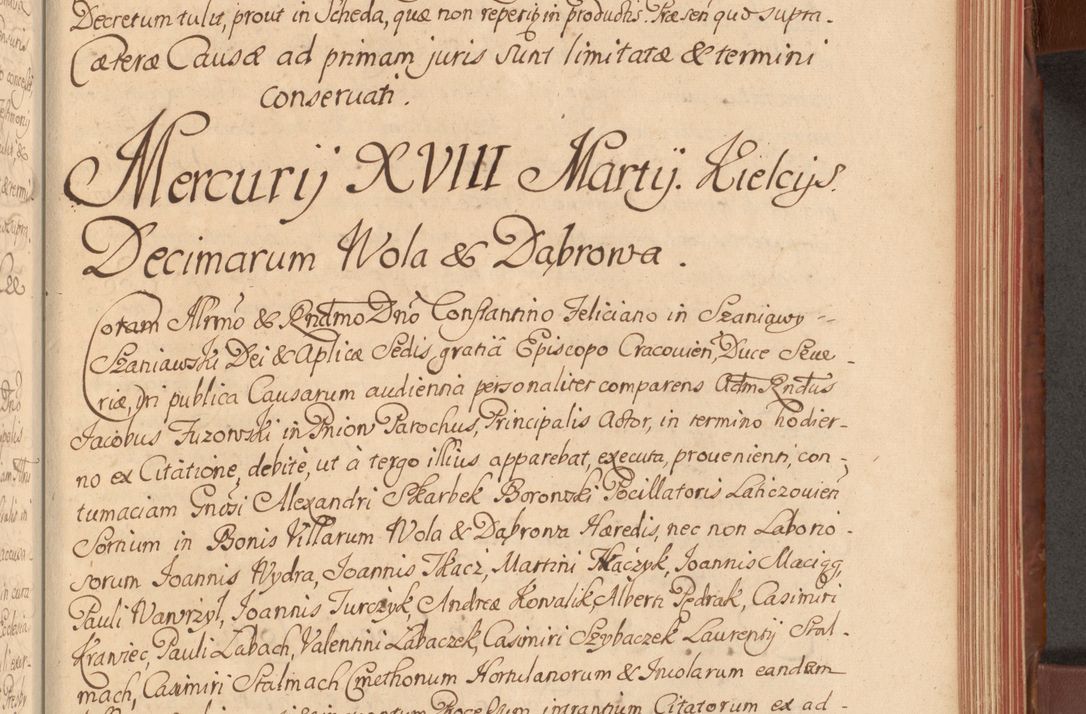 Decretum tulit, prout in Scheda, quæ non reperiẽ in productis. Præseñ quo supra.
Cæteræ Causæ ad primam juris sunt limitatæ & termini
conseruati.
Mercurij XVIII Martij. Kielcijs.
Decimarum Wola & Dąbrowa.
Coram Illrmõ & Rndmo Dnõ Constantino Feliciano in Szaniawy
Szaniawski Dei & Aplicæ Sedis gratiâ Episcopo Cracovieñ, Duce Seue-
riæ, in publica Causarum audientia personaliter comparens Adm Rndus
Jacobus Juzowski in Pnion Parochus, Principalis Actor, in termino hodier-
no ex Citatione, debitè, ut à tergo illius apparebat, executa, prouenienti, con-
tumaciam Gnõsi Alexandri Skarbek Borowski Pocillatoris Lanczovieñ
in Bonis Villarum Wola & Dąbrowa Hæredis, nec non Laborio-
sorum Joannis Wydra, Joannis Tkacz, Martini Tkaczyk, Joannis Maciąg,
Pauli Wawrzyl, Joannis Jurczyk, Andreæ Kowalik, Alberti Pędrak, Casimiri
Krawiec, Pauli Labach, Valentini Labaczek, Casimiri Szybaczek Laurentij Stal-
mach, Casimiri Stalmach Cmethonum Hortulanorum & Incolarum earundem
Citatorum ex ad-